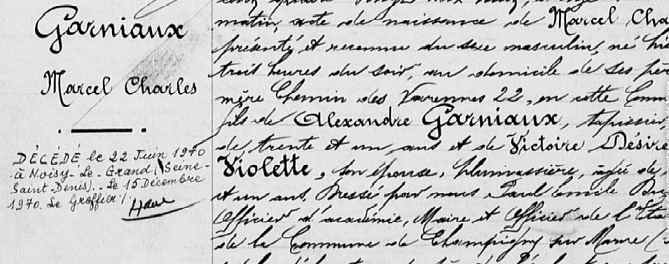 Garniaux
Marcel Charles
DÉCÉDÉ le 22 Juin 1970
à Noisy-Le-Grand (Seine-
Saint Denis). Le 15 Décembre
1970. Le Greffier /.
matin, acte de naissance de Marcel Cha
présenté, et reconnu du sexe masculin, né hi
trois heures du soir, au domicile de ses pèr
mère Chemin des Varennes 22, en cette Comm
fils de Alexandre Garniaux, tapissier
de trente et un ans et de Victoire Désire
Violette, son épouse, plumassière, âgée de
et un ans. Dressé par nous Paul Emile
Officier d'académie, Maire et Officier de l'Eta
de la Commune de Champigny sur Marne